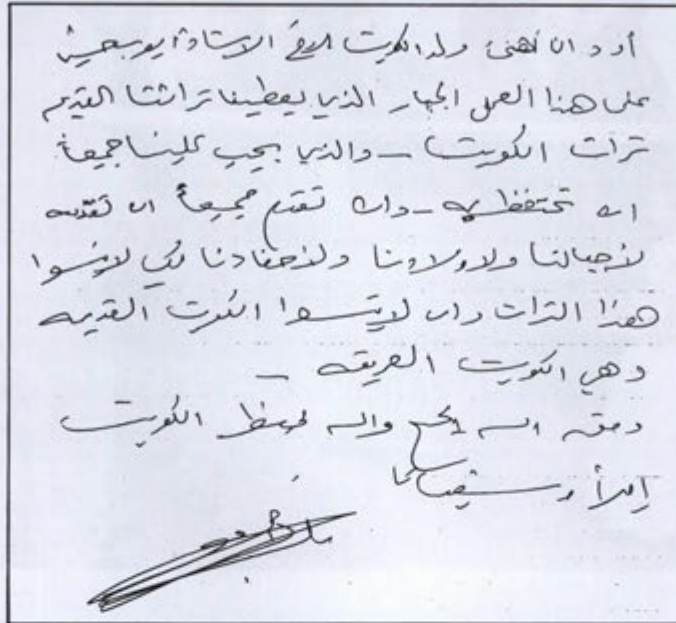 أود ان اهنئ ولد الكويت الاخ الاستاذ ايوب حسين
على هذا العمل الجبار الذي يعطينا تراثنا القديم
تراث الكويت - والذي يجب علينا جميعاً
ان نحتفظ به - وان نقدم جميعاً ان نقدمه
لأجيالنا ولاولادنا ولأحفادنا لكي لا ينسوا
هذا التراث وان لا ينسوا الكويت القديمه
وهي الكويت العريقه -
وفق الله الجميع والله يحفظ الكويت